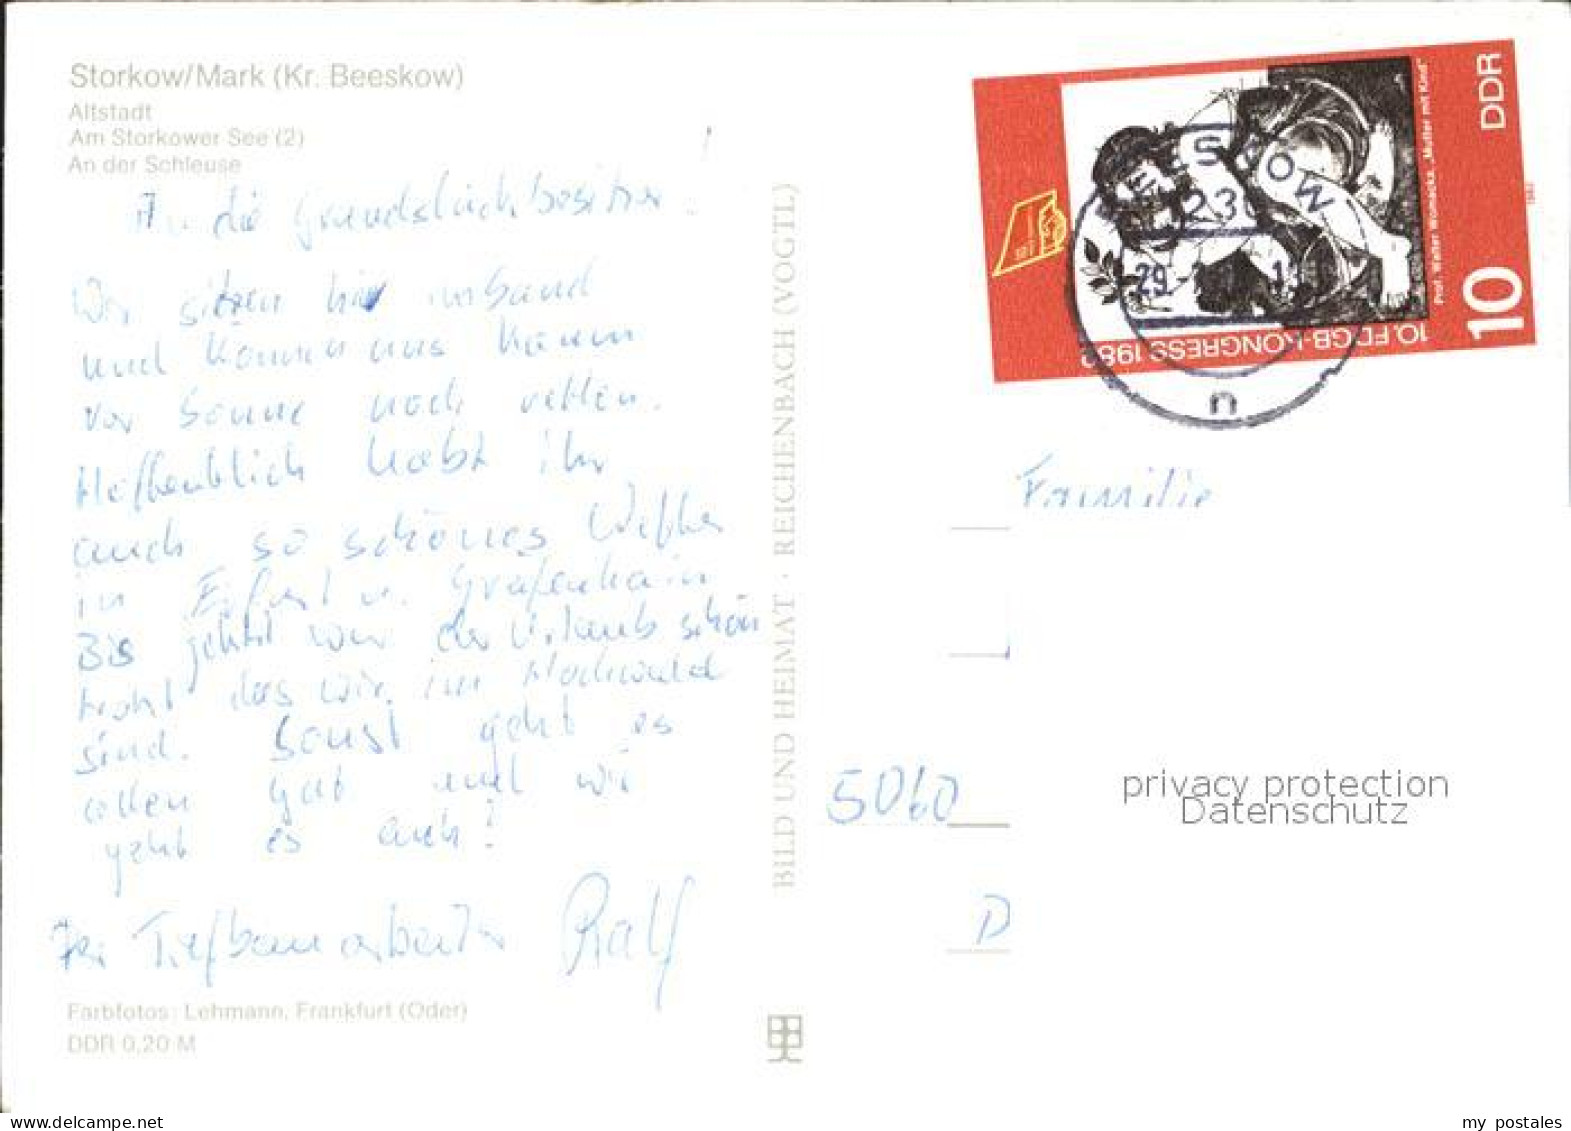 Storkow/Mark (Kr. Beeskow)
Altstadt
Am Storkower See (2)
An der Schleuse
An die Grundstückbesitzer!
Wir sitzen hier
und können uns kaum
vor Sonne noch retten.
Hoffentlich habt ihr
auch so schönes Wetter
in Erfurt u. Gräfenhain
Bis jetzt war der Urlaub schön
trotz das wir im
sind. Sonst geht es
allen gut und wie
geht es euch?
Der Tiefbauarbeiter Ralf
Farbfotos: Lehmann, Frankfurt (Oder)
DDR 0,20 M
BILD UND HEIMAT · REICHENBACH (VOGTL)
DDR
10
10. FDGB-KONGRESS 1982
Prof. Walter Womacka, „Mutter mit Kind“
1982
BEESKOW
1230
29.
n
Familie
5060
D
privacy protection
Datenschutz
www.delcampe.net
my_postales